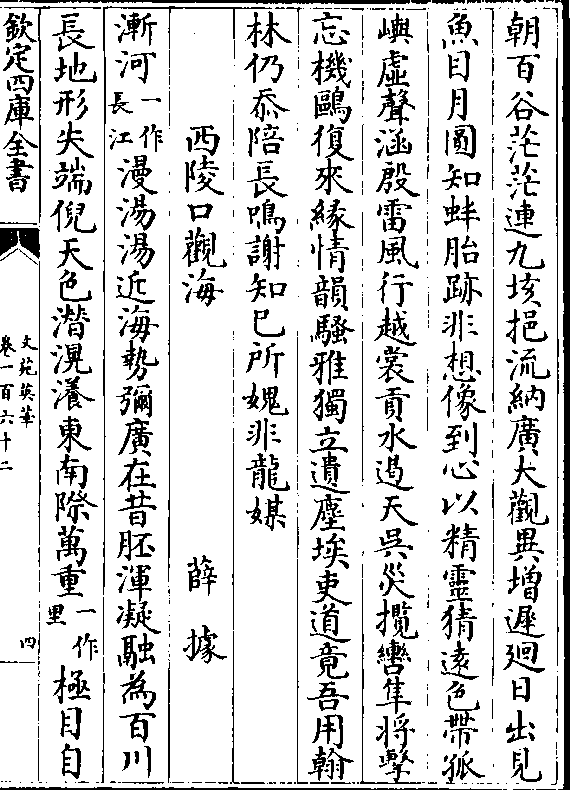 朝百谷茫茫連九垓挹流納廣大觀異增遲廻日出見
魚目月圓知蚌胎跡非想像到心以精靈猜遠色帶孤
嶼虛聲涵殷雷風行越裳貢水遏天吳災攬轡隼將擊
忘機鷗復來緣情韻騷雅獨立遺塵埃吏道竟吾用翰
林仍忝陪長鳴謝知己所媿非龍媒
西陵口觀海 薛據
漸河一作長江漫湯湯近海勢彌廣在昔胚渾凝融為百川
長地形失端倪天色潛滉瀁東南際萬重一作里極目自
欽定四庫全書 文苑英華 卷一百六十二 四